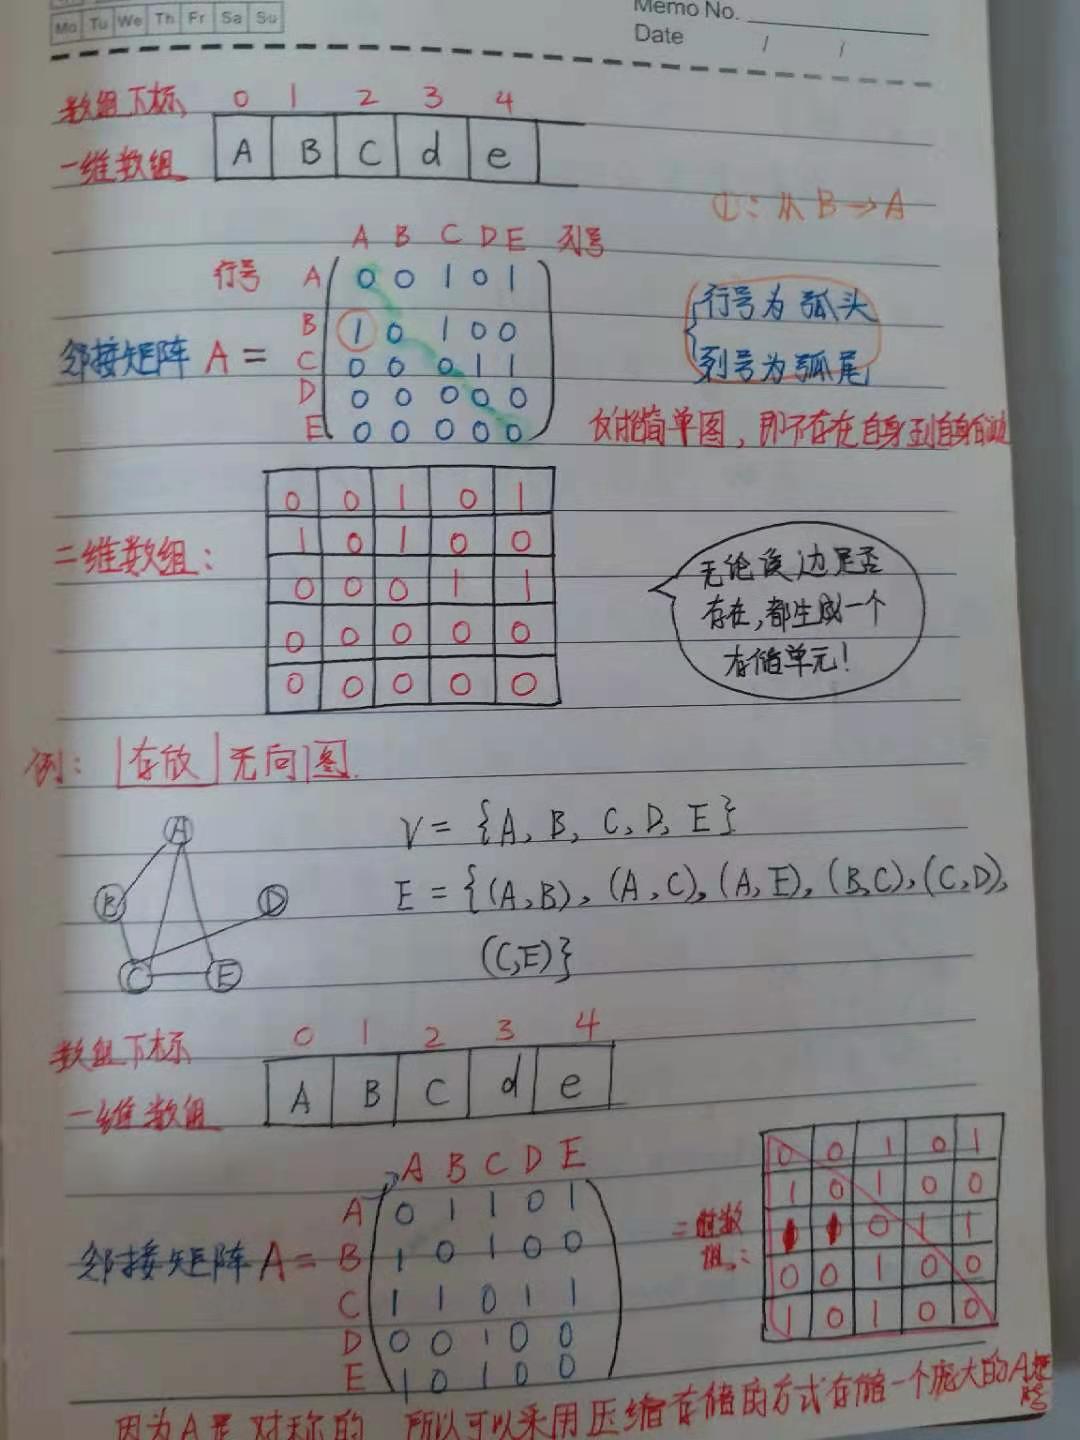 Mo Tu We Th Fr Sa Su
Memo No.
Date / /
数组下标 0 1 2 3 4
一维数组 A B C d e
①:从B→A
A B C D E 列号
行号 A 0 0 1 0 1
B 1 0 1 0 0
邻接矩阵 A = C 0 0 0 1 1
D 0 0 0 0 0
E 0 0 0 0 0
行号为弧头
列号为弧尾
简单图,即不存在自身到自身的边
二维数组:
0 0 1 0 1
1 0 1 0 0
0 0 0 1 1
0 0 0 0 0
0 0 0 0 0
无论该边是否
存在,都生成一个
存储单元!
例: 存放 无向图
A
B D
C E
V = {A, B, C, D, E}
E = {(A,B), (A,C), (A,E), (B,C), (C,D),
(C,E)}
数组下标 0 1 2 3 4
一维数组 A B C d e
A B C D E
A 0 1 1 0 1
邻接矩阵 A = B 1 0 1 0 0
C 1 1 0 1 1
D 0 0 1 0 0
E 1 0 1 0 0
二维数
组:
0 0 1 0 1
1 0 1 0 0
1 1 0 1 1
0 0 1 0 0
1 0 1 0 0
因为A是对称的 所以可以采用压缩存储的方式存储一个庞大的A矩